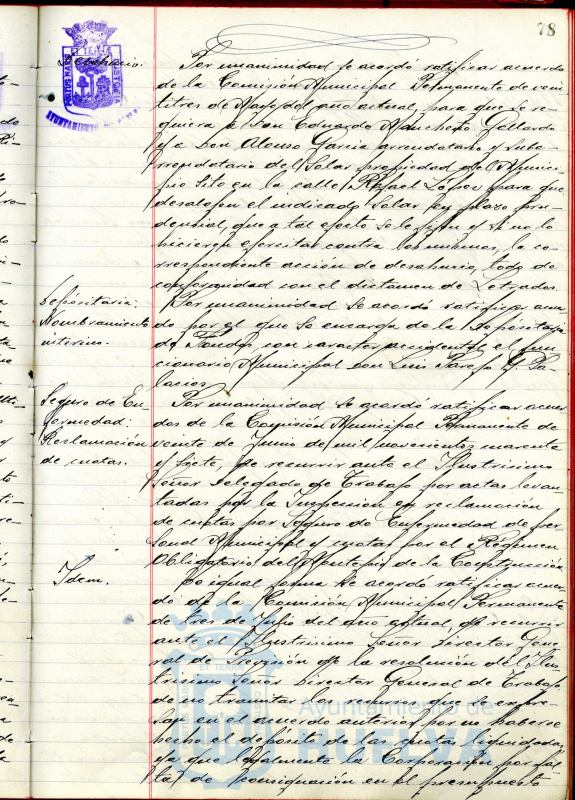 78
Desahucio.
Por unanimidad se acordó ratificar acuerdo
de la Comisión Municipal Permanente de vein
titres de Mayo del año actual, para que se re-
quiera a Don Eduardo Mancheño Gallardo
y a Don Alonso Garcia arrendatario y sub
propietario del Solar propiedad del Munici-
pio sito en la calle Rafael Lopez para que
desalojen el indicado Solar en plazo pru-
dencial, que a tal efecto se le fijen y si no lo
hicieren ejercitar contra los mismos, la co-
rrespondiente acción de desahucio, todo de
conformidad con el dictamen de Letrados.
Depositaria.
Nombramiento
interino.
Por unanimidad se acordó ratificar acuer
do por el que se encarga de la Depositaria
de Fondos con caracter accidental el fun
cionario Municipal don Luis Parejo Pa-
lacios.
Seguro de En-
fermedad:
Reclamación
de cuotas.
Por unanimidad se acordó ratificar acuer
dos de la Comisión Municipal Permanente de
veinte de Junio de mil novecientos cuarenta
y siete, de recurrir ante el Ilustrisimo
Señor Delegado de Trabajo por actas levan
tadas por la Inspección en reclamación
de cuotas por Seguro de Enfermedad de per
sonal Municipal y cuotas por el Regimen
Obligatorio del Montepio de la Construcción.
Idem.
De igual forma se acordó ratificar acuer
do de la Comisión Municipal Permanente
de tres de Julio del año actual, de recurrir
ante el Ilustrisimo Señor Director Gene
ral de Previsión de la resolución del Ilus
trisimo Señor Director General de Trabajo
de no tramitar los recursos que se expre-
san en el acuerdo anterior por no haberse
hecho el depósito de las cuotas liquidadas
ya que legalmente la Corporación por fal
ta de consignación en el presupuesto
Ayuntamiento de
HUELVA